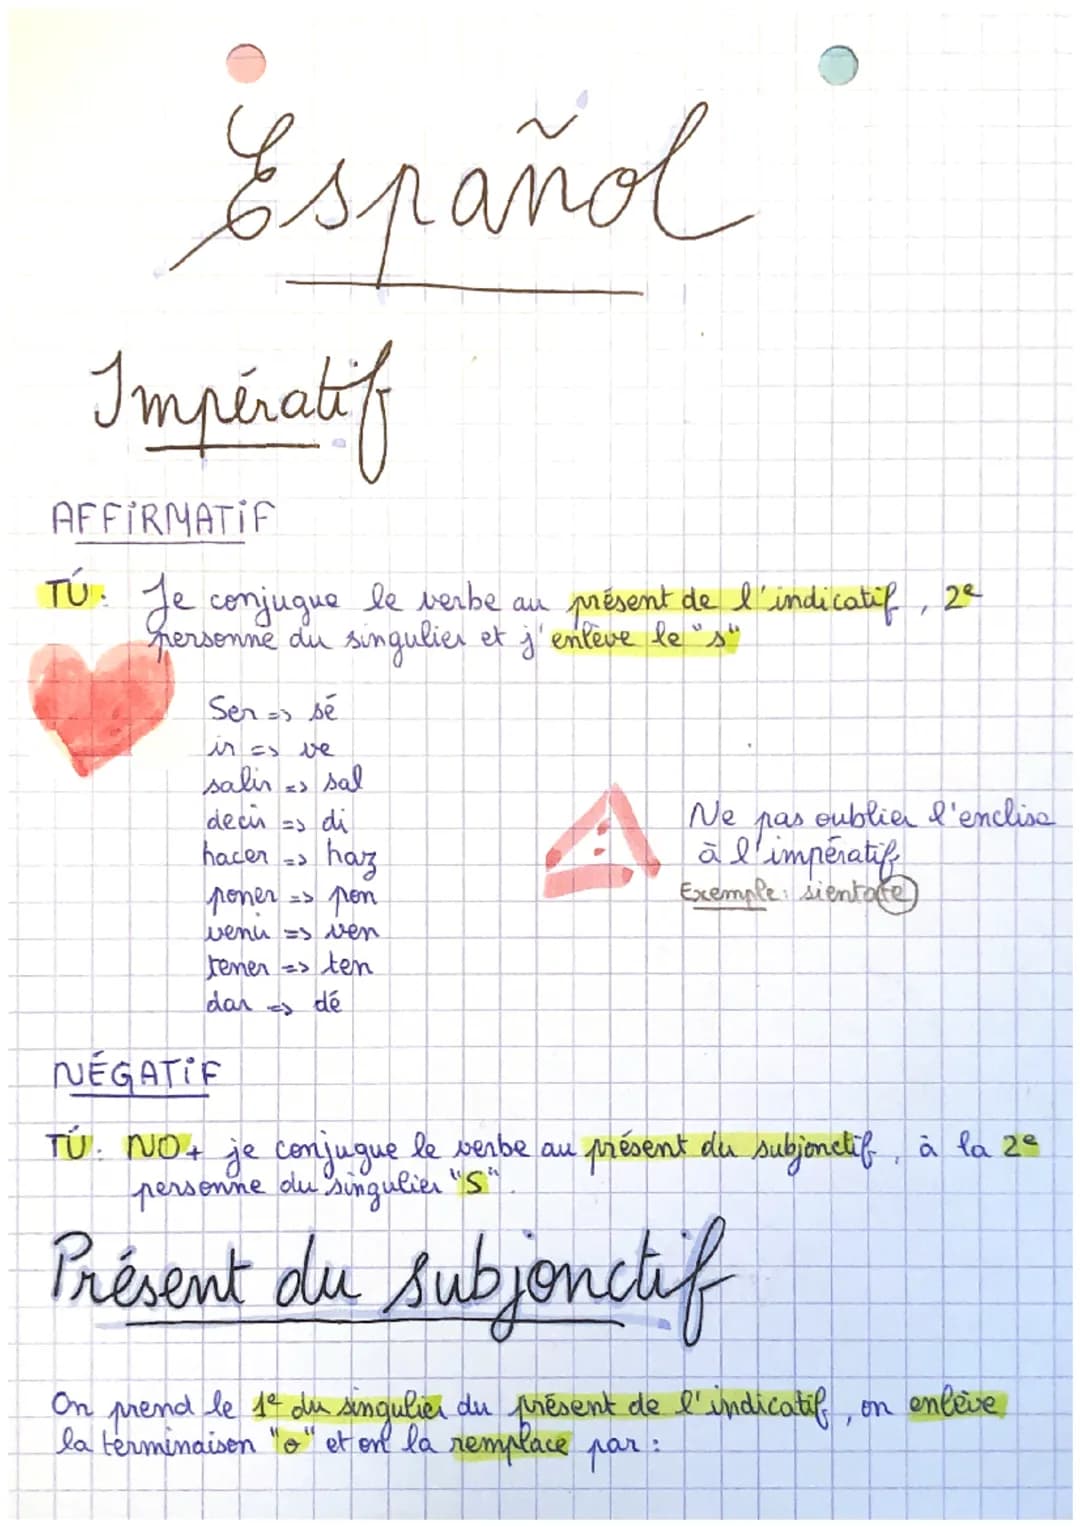 Español
Impératif
AFFIRMATIF
TÚ: Je conjugue le verbe au présent de l'indicatif, 2e
personne du singulier et j'enlève le "s"
Ser => sé
ir => ve
salir => sal
decir => di
hacer => haz
poner => pon
venir => ven
tener => ten
dar => dé
Ne pas oublier l'enclise
à l'impératif
Exemple: sientate
NÉGATIF
TÚ: NO + je conjugue le verbe au présent du subjonctif, à la 2e
personne du singulier "S".
Présent du subjonctif
On prend le 1e du singulier du présent de l'indicatif, on enlève
la terminaison "o" et on la remplace par :